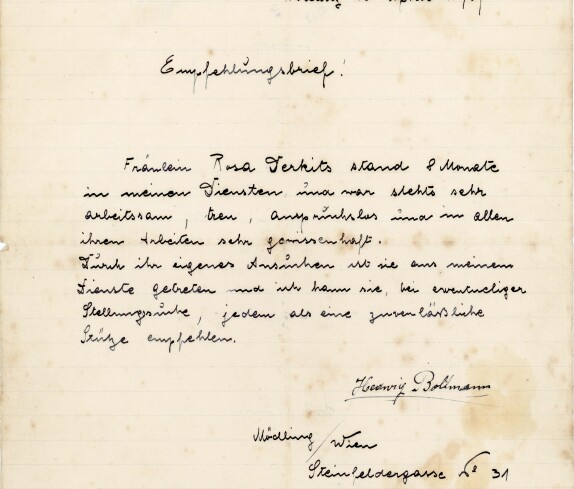 Empfehlungsbrief!
Fräulein Rosa Derkits stand 8 Monate
in meinen Diensten und war stehts sehr
arbeitsam, treu, anspruchslos und in allen
ihren Arbeiten sehr gewissenhaft.
Durch ihr eigenes Ansuchen ist sie aus meinem
Dienste getreten und ich kann sie, bei eventueller
Stellungssuche, jedem als eine zuverläßliche
Stütze empfehlen.
Hedwig Bollmann
Mödling / Wien
Steinfeldergasse No 31